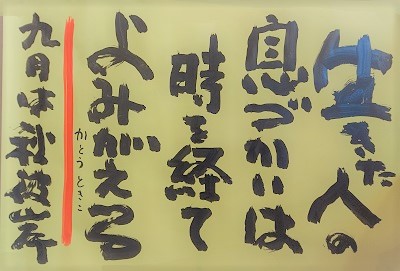 生きた人の
息づかいは
時を経て
よみがえる
かとうときこ
九月は秋彼岸